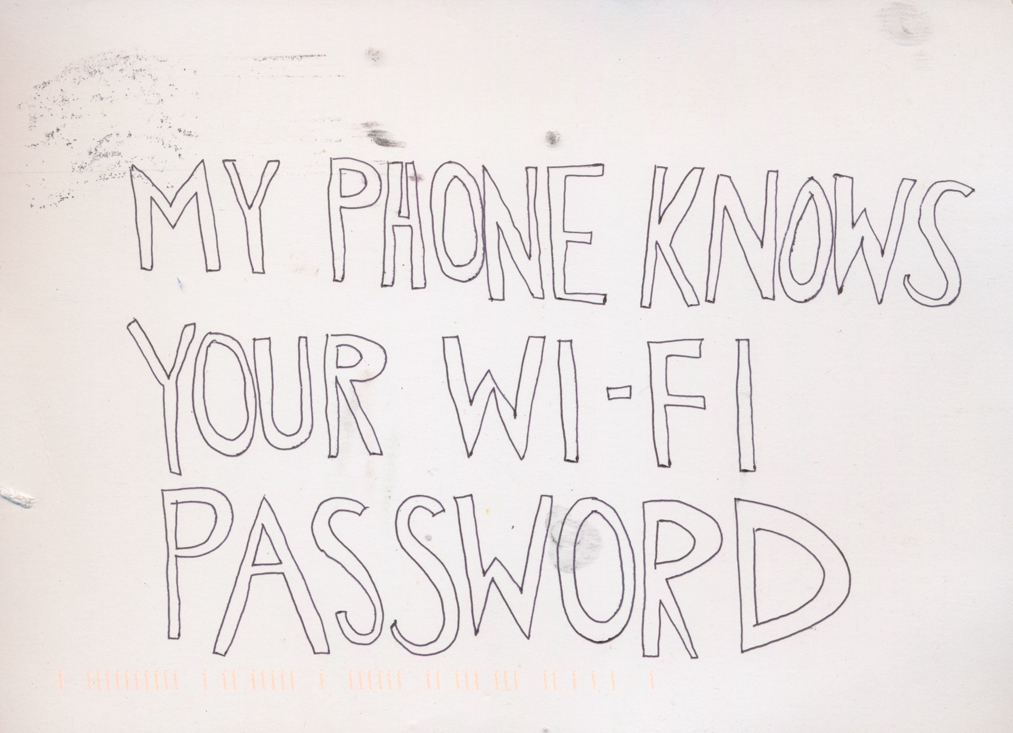 MY PHONE KNOWS
YOUR WI-FI
PASSWORD